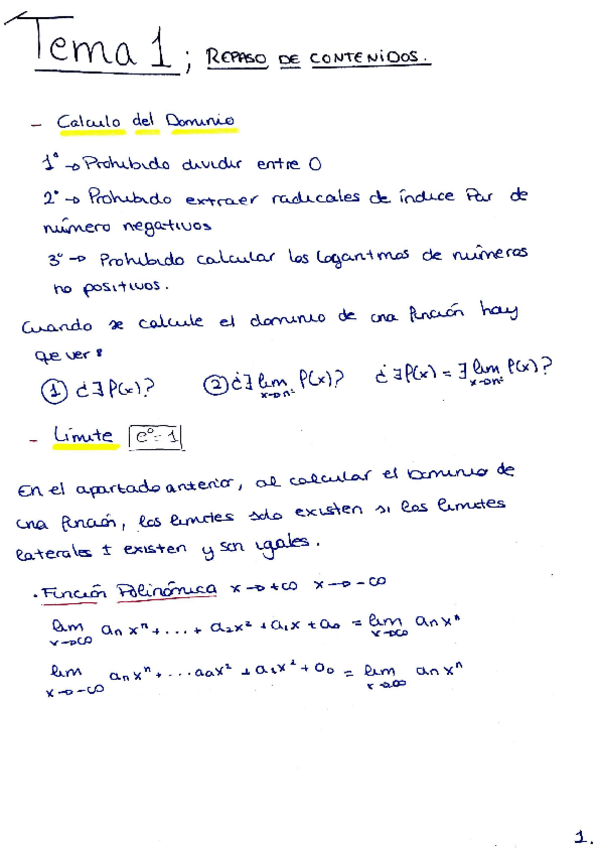 Tema 1; REPASO DE CONTENIDOS.
- Calculo del Dominio
1º → Prohibido dividir entre 0
2º → Prohibido extraer radicales de índice Par de
número negativos
3º → Prohibido calcular los logaritmos de números
no positivos.
Cuando se calcule el dominio de una función hay
que ver:
① ¿∃ f(x)? ② ¿∃ lim f(x)? ¿∃ f(x) = ∃ lim f(x)?
x→n± x→n±
- Límite e⁰=1
En el apartado anterior, al calcular el Dominio de
una función, los limites solo existen si los limites
laterales ± existen y son igales.
· Función Polinómica x→+∞ x→-∞
lim aₙxⁿ+...+ a₂x² + a₁x + a₀ = lim aₙxⁿ
x→∞ x→∞
lim aₙxⁿ+...a₂x² + a₁x¹ + a₀ = lim aₙxⁿ
x→-∞ x→∞
1.